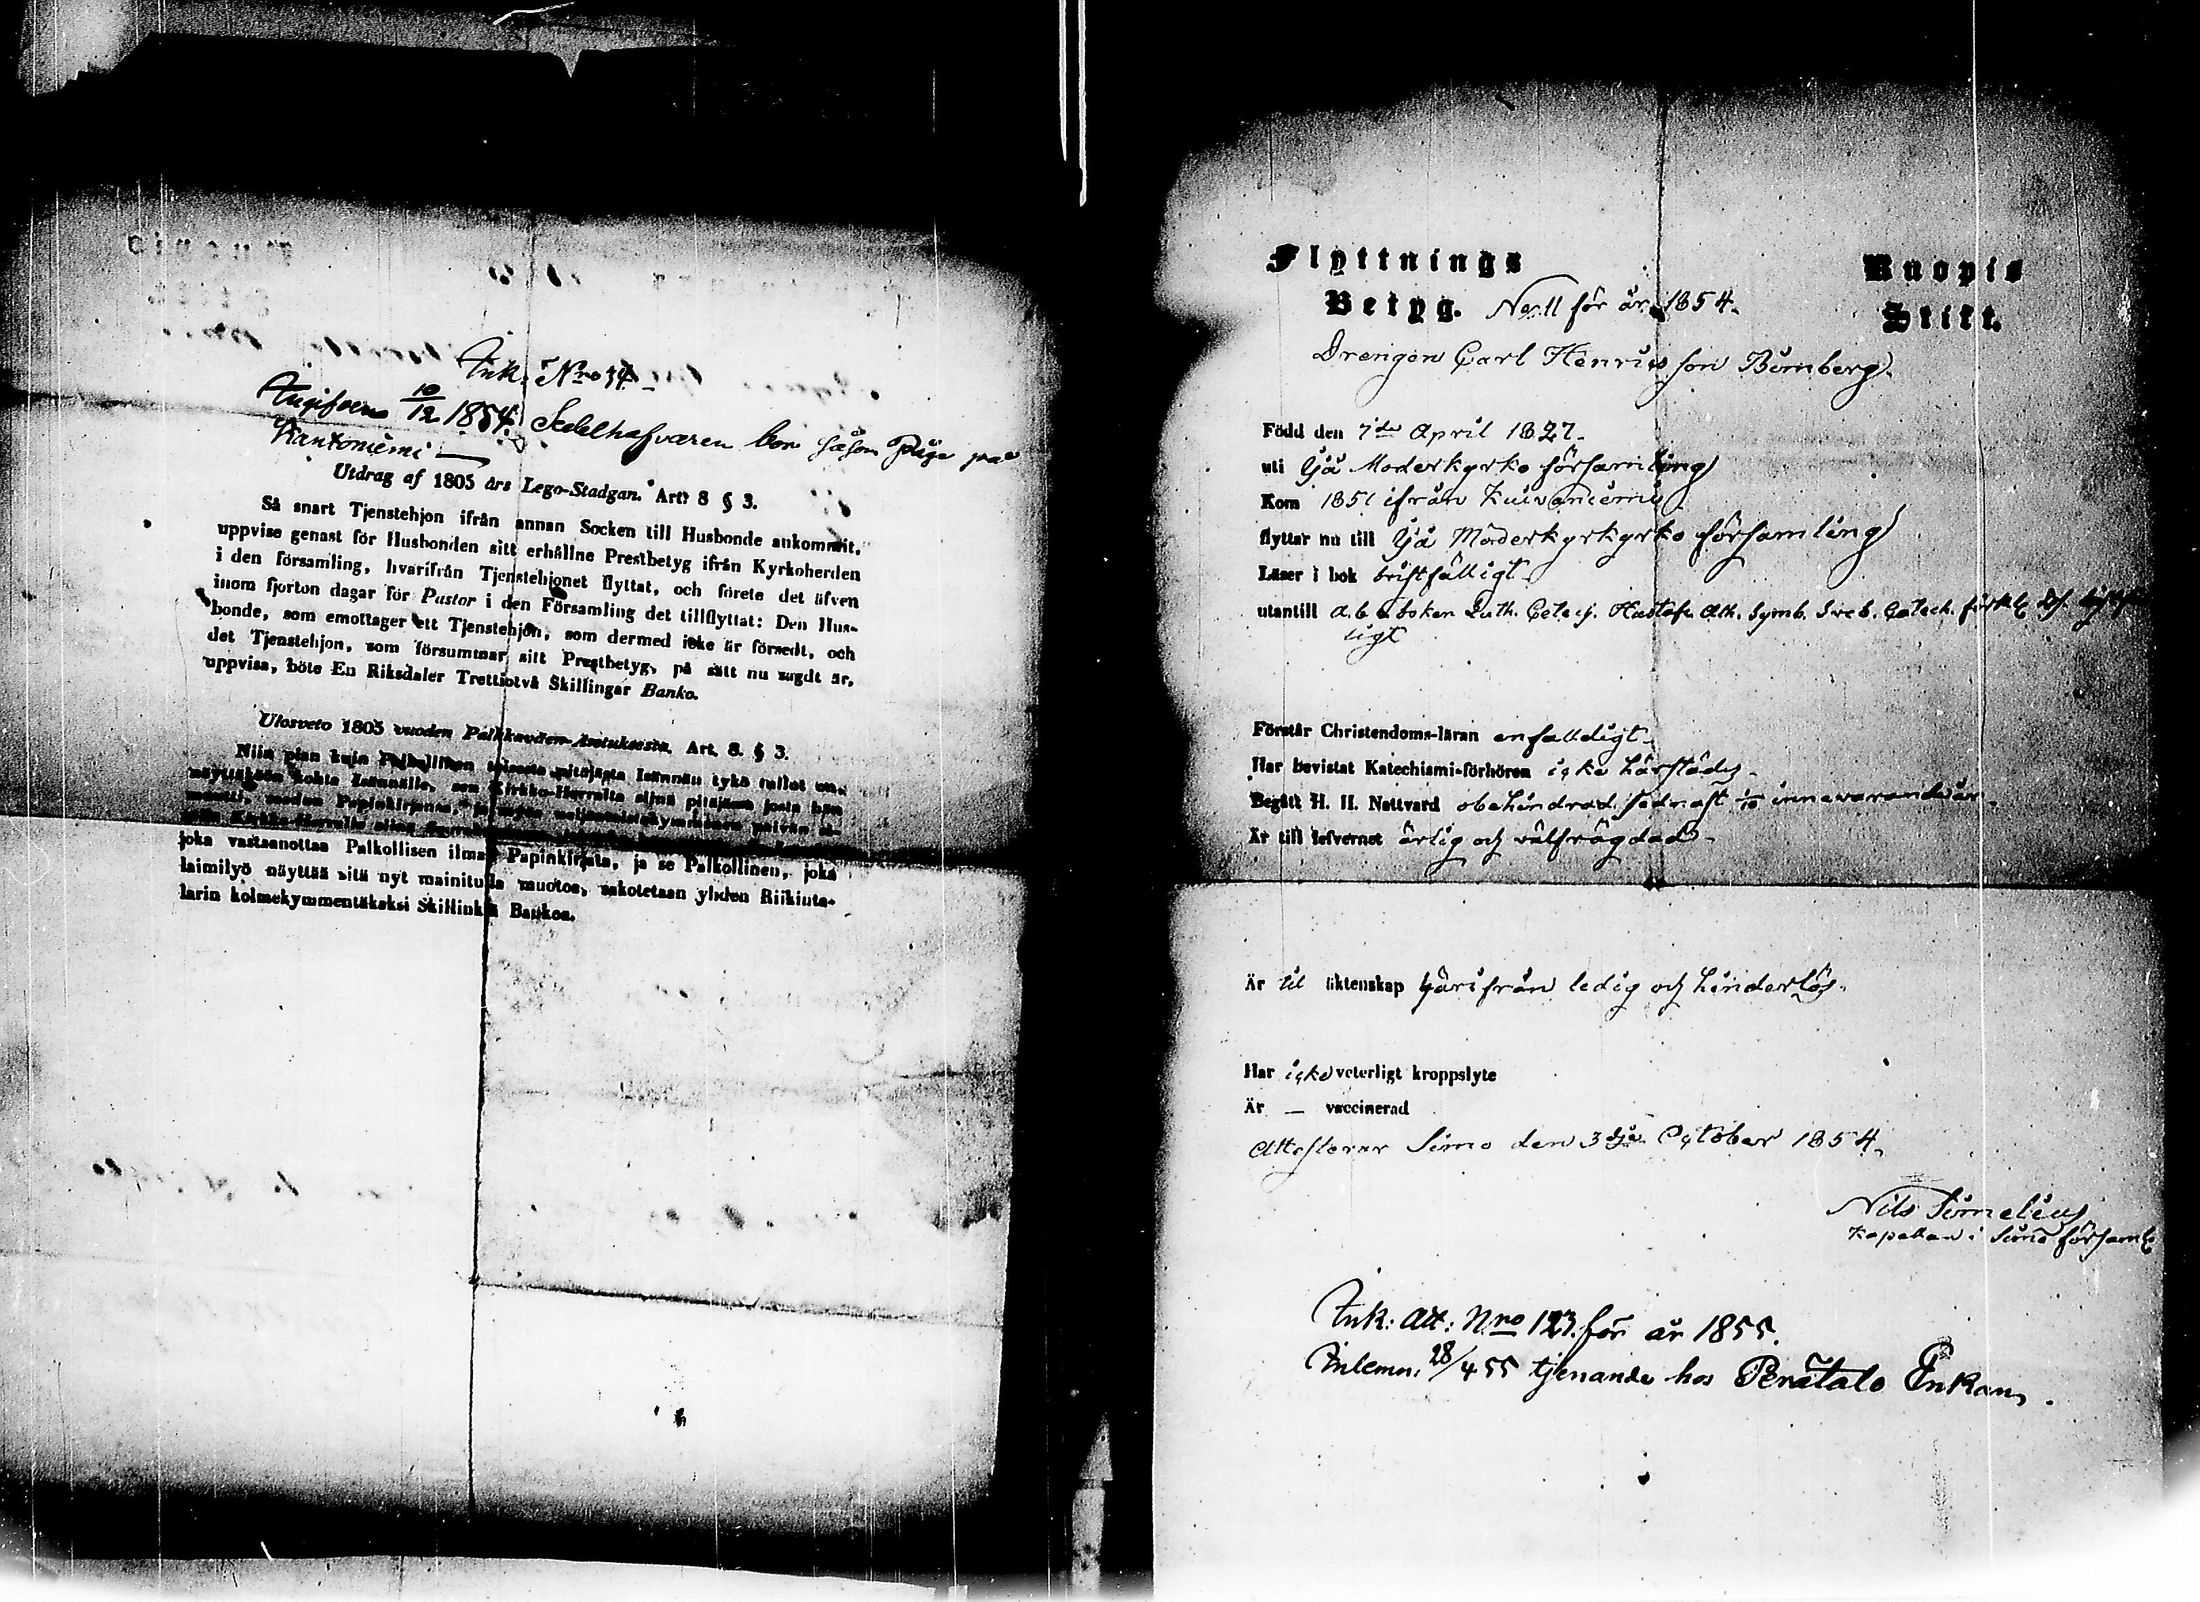 Ink. Nro 34.
Angifven 10/12 1854. Sedelhafvaren bor såsom Piga på
Kantoniemi
Utdrag af 1805 års Lego-Stadgan. Art. 8 § 3.
Så snart Tjenstehjon ifrån annan Socken till Husbonde ankommit,
uppvise genast för Husbonden sitt erhållne Prestbetyg ifrån Kyrkoherden
i den församling, hvarifrån Tjenstehjonet flyttat, och förete det äfven
inom fjorton dagar för Pastor i den Församling det tillflyttat: Den Hus-
bonde, som emottager ett Tjenstehjon, som dermed icke är försedt, och
det Tjenstehjon, som försummar sitt Prestbetyg, på sätt nu sagdt är,
uppvisa, böte En Riksdaler Trettiotvå Skillingar Banko.
Ulosveto 1805 vuoden Palkkaväen-Asetuksesta. Art. 8. § 3.
Niin pian kuin Palkollinen toisesta pitäjästä Isännän tykö tullut on,
näyttäköön kohta Isännälle, sen Kirkko-Herralta siinä pitäjässä josta hän
joka vastaanottaa Palkollisen ilman Papinkirjata, ja se Palkollinen, joka
laimilyö näyttää sitä nyt mainitulla muotoa, sakotetaan yhden Riikinta-
larin kolmekymmentäkaksi Skillinkiä Bankoa.
Flyttnings
Betyg. No 11 för år 1854.
Kuopio
Stift.
Drengen Carl Henricsson Bomberg.
Född den 7de April 1827.
uti Ijå Moderkyrko församling
Kom 1851 ifrån Kuivaniemi
flyttar nu till Ijå Moderkyrkyrko församling
Läser i bok bristfälligt
utantill a.b.c boken Luth. Catech. Hustafl. Ath. Symb. Sveb. Catech.
ligt
Förstår Christendoms-läran enfaldigt.
Har bevistat Katechismi-förhören icke härstädes.
Begått H. H. Nattvard obehindrad sednast 1/10 innevarande år.
Är till lefvernet ärlig och välfrägdad.
Är til äktenskap härifrån ledig och hinderlös.
Har icke veterligt kroppslyte
Är — vaccinerad
Attesterar Simo den 3dje October 1854.
Nils
Kapellan i Simo församl.
Ink: Att: Nro 123. för år 1855.
Inlemn. 28/4 55 tjenande hos Perätalo Enkan.